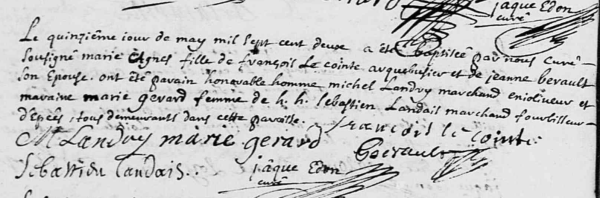 jaque Edon
curé
Le quinzième iour de may mil sept cent deuse a été baptisée par nous curé
sousigné marie Agnes fille de françois Le cointe arquebusier et de jeanne berault
son Epouse. ont été parain honorable homme michel Landry marchand eniolieur et
maraine marie gerard femme de h. h. sebastien Landais marchand fourbisseur
d'epées; tous demeurants dans cette paroisse.
francois le cointe
M Landry marie gerard
Gerault
Sebastien Landais.
jaque Edon
curé